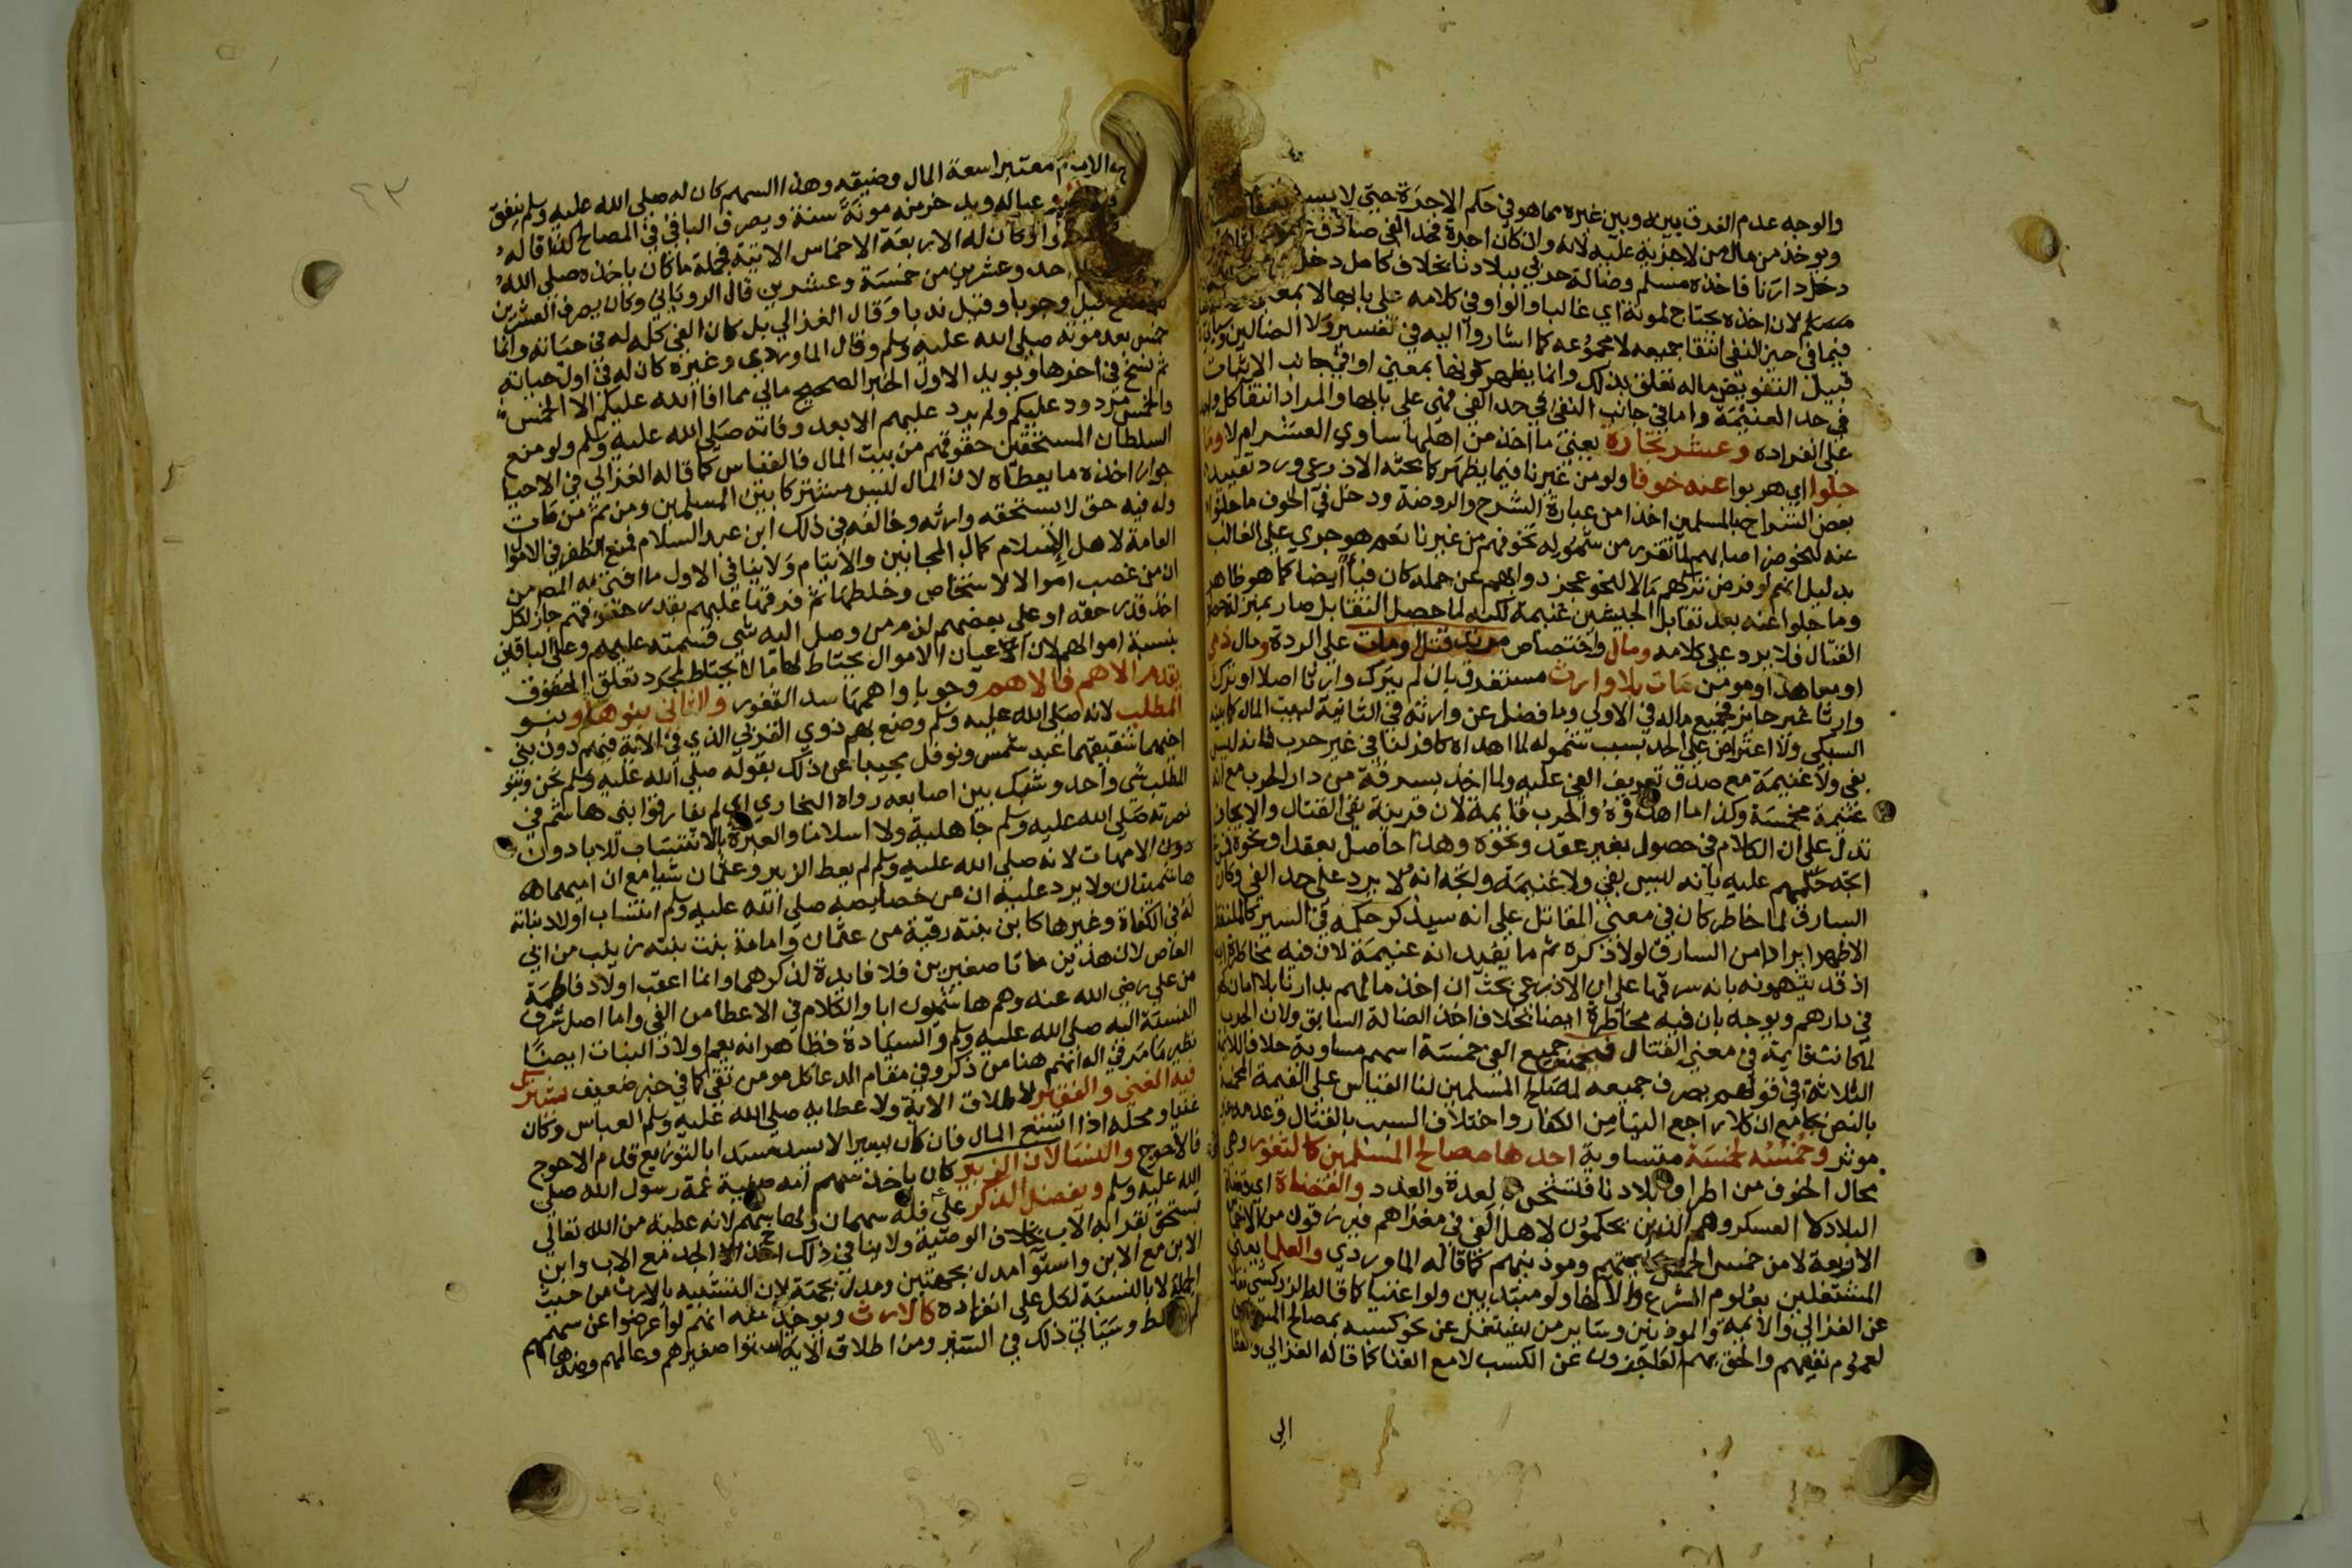 والوجه عدم الفرق بينه وبين غيره مما هو في حكم الاجرة حتى لا يسـ
ويوخذ من مال من لاجزية عليه لانه وان كان اجرة فحد الفي صادق
دخل دارنا فاخذه مسلم وضالة حربي ببلادنا بخلاف كامل دخل
مسلم لان اخذه يحتاج لمونة اي غالبا والواو في كلامه على بابها لا بمعنى
فيما في حيز النفي انتفا جميعه لا مجموعه كما اشاروا اليه في تفسير ولا الضالين
قبيل التفويض ماله تعلق بذلك وانما يظهر كونها بمعنى او في جانب الاثبات
في حد الغنيمة واما في جانب النفي في حد الفي فهي على بابها والمراد انتفا كل
على انفراده وعشر تجارة يعني ما اخذ من اهلها ساوي العشر ام لا وما
جلوا اي هربوا عنه خوفا ولو من غيرنا فيما يظهر كما بحثه الاذرعي ورد تقييد
بعض الشراح بالمسلمين اخذا من عبارة الشرح والروضة ودخل في الخوف ما جلوا
عنه لنحو ضر اصابهم لما تقرر من شموله نحو فهم من غيرنا نعم هو جري على الغالب
بدليل انهم لو فرض تركهم مالا لنحو عجز دوابهم عن حمله كان فيأ ايضا كما هو ظاهر
وما جلوا عنه بعد تقابل الجيشين غنيمة لكنه لما حصل التقابل صار بمنزلة حصول
القتال فلا يرد على كلامه ومال واختصاص مرتد قتل ومات على الردة ومال ذمي
او معاهد او مومن مات بلا وارث مستغرق بان لم يترك وارثا اصلا او ترك
وارثا غير حايز فجميع ماله في الاولى وما فضل عن وارثه في الثانية لبيت المال كما بينه
السبكي ولا اعتراض على الحد بسبب شموله لما اهداه كافر لنا في غير حرب فانه ليس
بفي ولا غنيمة مع صدق تعريف الفي عليه ولما اخذ بسرقة من دار الحرب مع انه
غنيمة مخمسة وكذا ما اهدوه والحرب قايمة لان قرينة نفي القتال والايجاف
تدل على ان الكلام في حصول بغير عقد ونحوه وهذا حاصل بعقد او نحوه
اتجه حكمهم عليه بانه ليس بفي ولا غنيمة واتجه انه لا يرد على حد الفي وكان
السارق لما خاطر كان في معنى المقاتل على انه سيذكر حكمه في السير كالملتقط
الاظهر ايرادا من السارق لولا ذكره ثم ما يفيد انه غنيمة لان فيه مخاطرة
اذ قد يتهمونه بانه سرقها على ان الاذرعي بحث ان اخذ مالهم بدارنا بلا امان
في دارهم ويوجه بان فيه مخاطرة ايضا بخلاف اخذ الضالة السابق ولان الحرب
لما كانت قايمة في معنى القتال فيخمس جميع الفي خمسة اسهم متساوية خلافا للايمة
الثلاثة في قولهم يصرف جميعه لمصالح المسلمين لنا القياس على الغنيمة المخمسة
بالنص بجامع ان كلا راجع الينا من الكفار واختلاف السبب بالقتال وعدمه غير
موثر وخمسه لخمسة متساوية احدها مصالح المسلمين كالثغور وهي
محال الخوف من اطراف بلادنا فتشحن بالعدة والعدد والقضاة اي قضاة
البلاد لا العسكر وهم الذين يحكمون لاهل الفي في مغزاهم فيرزقون من الاخماس
الاربعة لا من خمس الخمس كايمتهم وموذنيهم كما قاله الماوردي والعلما يعني
المشتغلين بعلوم الشرع والاتها ولو مبتديين ولو اغنيا كما قاله الزركشي نقلا
عن الغزالي والايمة والموذنين وساير من يشتغل عن نحو كسبه بمصالح المسلمين
لعموم نفعهم والحق بهم العاجزون عن الكسب لا مع الغنا كما قاله الغزالي والعطا
الي
الامام معتبرا سعة المال وضيقه وهذا السهم كان له صلى الله عليه وسلم ينفق
وعياله ويدخر منه مونة سنة ويصرف الباقي في المصالح كذا قاله
وكان له الاربعة الاخماس الاتية فجملة ما كان ياخذه صلى الله
احد وعشرين من خمسة وعشرين قال الروياني وكان يصرف العشرين
قيل وجوبا وقيل ندبا وقال الغزالي بل كان الفي كله له في حياته وانما
خمس بعد موته صلى الله عليه وسلم وقال الماوردي وغيره كان له في اول حياته
ثم نسخ في اخرها ويويد الاول الخبر الصحيح مالي مما افا الله عليكم الا الخمس
والخمس مردود عليكم ولم يرد عليهم الا بعد وفاته صلى الله عليه وسلم ولو منع
السلطان المستحقين حقوقهم من بيت المال فالقياس كما قاله الغزالي في الاحيا
جواز اخذه ما يعطاه لان المال ليس مشتركا بين المسلمين ومن ثم من مات
وله فيه حق لا يستحقه وارثه وخالفه في ذلك ابن عبد السلام فمنع الظفر في الاموال
العامة لاهل الاسلام كمال المجانين والايتام ولا ينافي الاول ما افتى به المص من
ان من غصب اموالا لاشخاص وخلطها ثم فرقها عليهم بقدر حقوقهم جاز لكل
اخذ قدر حقه او على بعضهم لزم من وصل اليه شي قسمته عليهم وعلى الباقين
بنسبة اموالهم لان اعيان الاموال يحتاط لها ما لا يحتاط لمجرد تعلق الحقوق
يقدم الاهم فالاهم وجوبا واهمها سد الثغور والثاني بنو هاشم وبنو
المطلب لانه صلى الله عليه وسلم وضع بهم ذوي القربى الذي في الاية فيهم دون بني
اخيهما شقيقهما عبد شمس ونوفل مجيبا عن ذلك بقوله صلى الله عليه وسلم نحن وبنو
المطلب شي واحد وشبك بين اصابعه رواه البخاري اي لم يفارقوا بني هاشم في
نصرته صلى الله عليه وسلم جاهلية ولا اسلاما والعبرة بالانتساب للابا دون
دون الامهات لانه صلى الله عليه وسلم لم يعط الزبير وعثمان شيا مع ان اميهما
هاشميتان ولا يرد عليه ان من خصايصه صلى الله عليه وسلم انتساب اولاد بناته
له في الكفاة وغيرها كابن بنته رقية من عثمان وامامة بنت بنته زينب من ابي
العاص لان هذين ماتا صغيرين فلا فايدة لذكرهما وانما اعقب اولاد فاطمة
من علي رضي الله عنه وهم هاشميون ابا والكلام في الاعطا من الفي واما اصل شرف
النسبة اليه صلى الله عليه وسلم والسيادة فظاهر انه يعم اولاد البنات ايضا
نظير ما مر في الوانهم هنا من ذكر وفي مقام الدعا كل مومن تقي كما في خبر ضعيف يشترك
فيه الغني والفقير لاطلاق الاية ولاعطايه صلى الله عليه وسلم العباس وكان
غنيا ومحله اذا اتسع المال فان كان يسيرا لا يسد مسدا بالتوزيع قدم الاحوج
فالاحوج والنسا لان الزبير كان ياخذ سهم امه صفية عمة رسول الله صلى
الله عليه وسلم ويفضل الذكر على فله سهمان ولها سهم لانه عطية من الله تعالى
تستحق بقرابة الاب بخلاف الوصية ولا ينافي ذلك اخذ الجد مع الاب وابن
الابن مع الابن واستوا مدل بجهتين ومدل بجهة لان التشبيه بالارث من حيث
الجملة لا بالنسبة لكل على انفراده كالارث ويوخذ منه انهم لو اعرضوا عن سهمهم
وسياتي ذلك في السير ومن اطلاق الاية استوا صغيرهم وعالمهم وضدهما